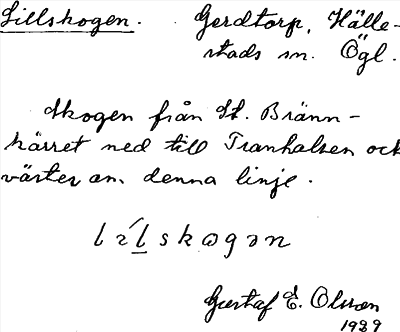 Lillskogen. Gerdtorp, Hälle-
stads sn. Ögl.
Skogen från St. Bränn-
kärret ned till Tranhalsen och
väster om denna linje.
Gustaf E. Olsson
1929